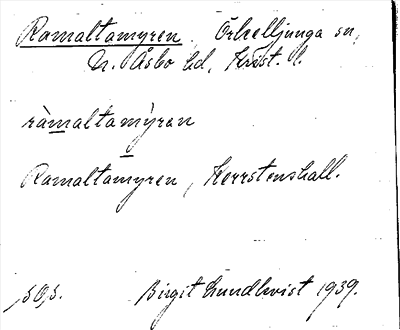 Ramaltamyren, Örkelljunga sn,
N. Åsbo hd, Krist. l.
ràmaltamỳren
Ramaltamyren, Herrstenshall.
Birgit Lundkvist 1939.